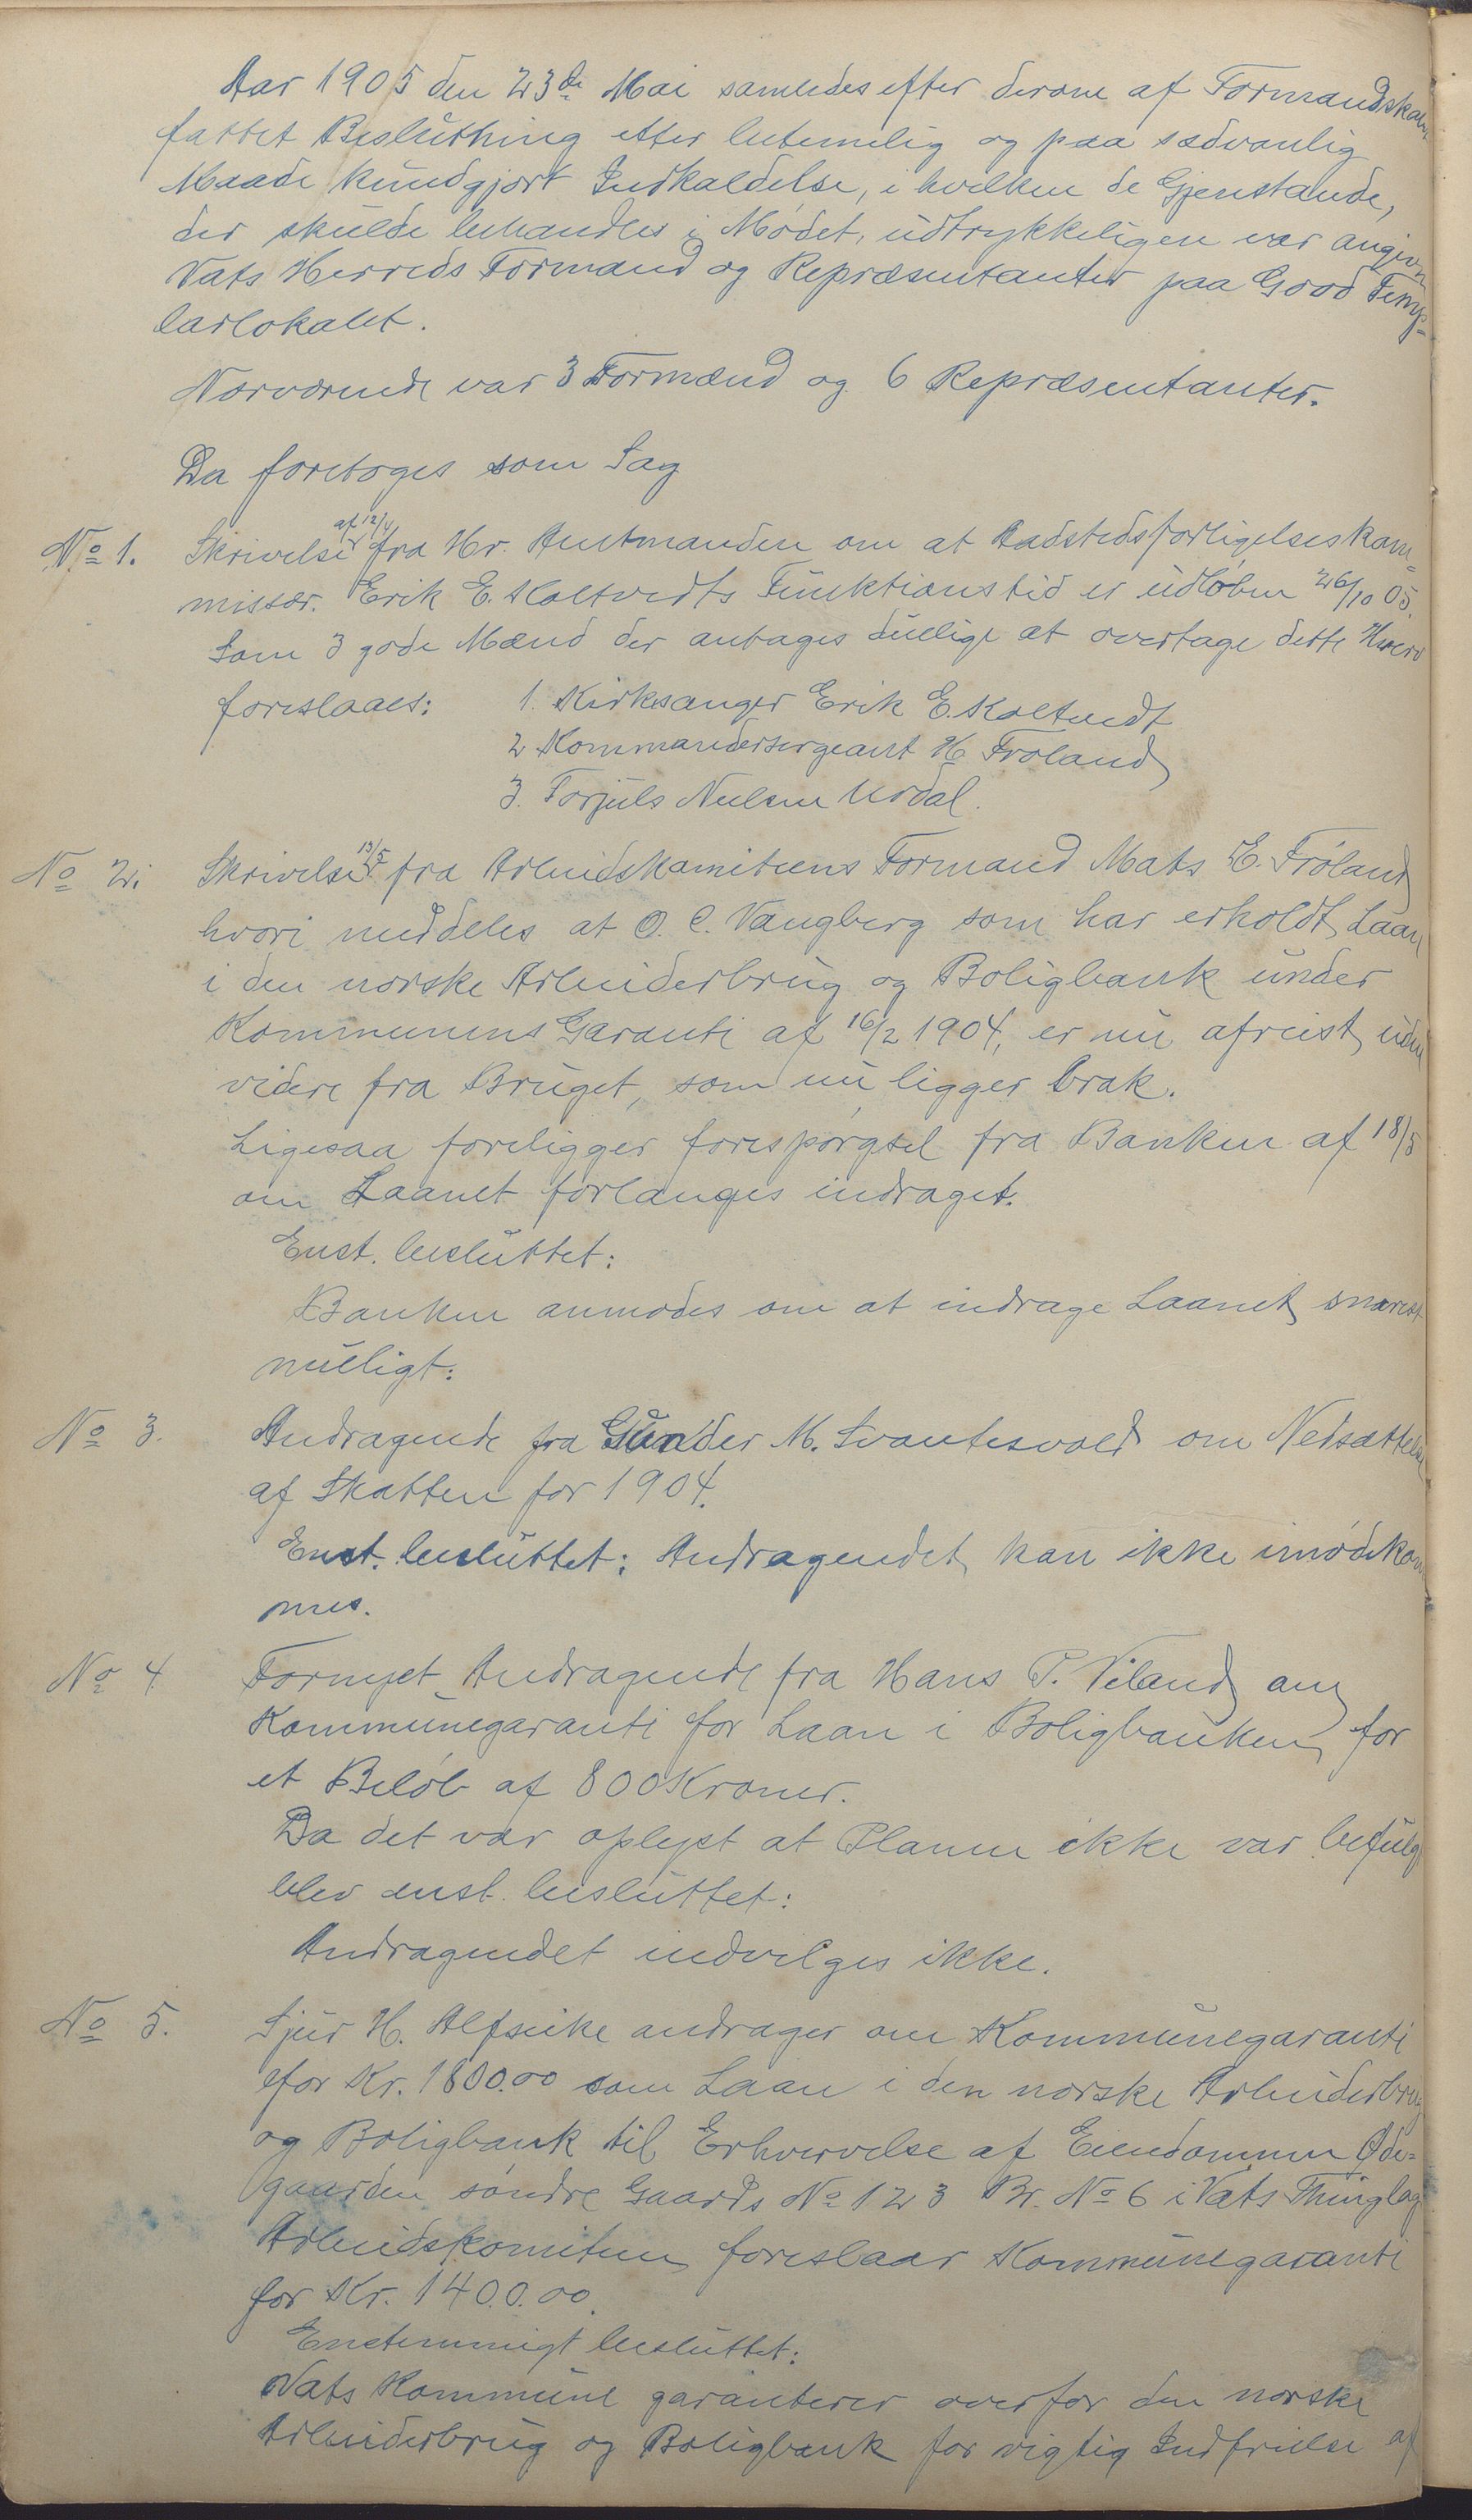 Aar 1905 den 23de Mai samledes efter derom af Formandskab
fattet Beslutning efter betimelig og paa sædvanlig
Maade kundgjort Indkaldelse, i hvilken de Gjenstande,
der skulde behandles i Mødet, udtrykkeligen var angivn
Vats Herreds Formænd og Repræsentanter paa Good Temp-
larlokalet.
Nærværende var 3 Formænd og 6 Repræsentanter.
Da foretoges som Sag
No 1. Skrivelse af 12/4 fra Hr. Amtmanden om at Aadstedsforligelseskom-
missær. Erik E. Koltvedts Funktionstid er udløben 26/10 05.
Som 3 gode Mænd der antages duelige at overtage dette Hverv
foreslaaes: 1. Kirkesanger Erik E. Koltvedt
2 Kommandersergeant H. Frøland
3. Torjuls Nilsen Nodal.
No 2. Skrivelse 13/5 fra Arbeidskomiteens Formand Mats E. Frøland
hvori meddeles at O. C. Vangberg som har erholdt Laan
i den norske Arbeiderbrug og Boligbank under
Kommunens Garanti af 16/2 1904, er nu afreist uden
videre fra Bruget, som nu ligger brak.
Ligesaa foreligger forespørgsel fra Banken af 18/5
om Laanet forlanges indraget.
Enst. besluttet:
Banken anmodes om at indrage Laanet snarest
muligt.
No 3. Andragende fra Gunder M. Svantesvold om Nedsættelse
af Skatten for 1904.
Enst. besluttet: Andragendet kan ikke imødekom
mes.
No 4 Fornyet Andragende fra Hans P. Viland om
Kommunegaranti for Laan i Boligbanken for
et Beløb af 800 Kroner.
Da det var oplyst at Planen ikke var befulgt
blev enst. besluttet:
Andragendet indvilges ikke.
No 5. Sjur H. Alfseike andrager om Kommunegaranti
for Kr. 1800.00 som Laan i den norske Arbeiderbrug
og Boligbank til Erhvervelse af Eiendommen Øde-
gaarden søndre Gaards No 123 Br. No 6 i Vats Thinglag
Arbeidskomiteen foreslaar Kommunegaranti
for Kr. 1400.00.
Enstemmigt besluttet:
Vats Kommune garanterer overfor den norske
Arbeiderbrug og Boligbank for rigtig Indfrielse af